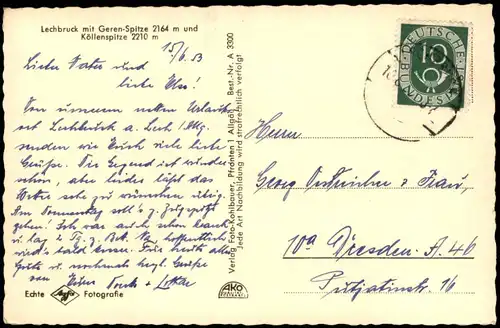 Lechbruck mit Geren-Spitze 2164 m und
Köllenspitze 2210 m
15/6.53
Lieber Vater und
liebe Else!
Von unserem netten Urlaubs-
ort Lechbruck a. Lech / Allg.
senden wir Euch viele liebe
Grüße. Die Gegend ist wunder-
schön, aber leider läßt das
Wetter sehr zu wünschen übrig.
Am Sonntag soll's z. Zugspitze
gehen! Ich war auch schon krank
u. lag Tg. z. Bett. Na, hoffentlich
wird's bald besser. Für heute alles
Gute u. nochmals herzl. Grüße
von Euren u. Lothar
Echte Agfa Fotografie
Verlag Foto-Kohlbauer, Pfronten 1 Allgäu Best.-Nr. A 3300
Jede Art Nachbildung wird strafrechtlich verfolgt
AKO
DEUTSCHE BUNDESPOST
10
Herrn
Georg und Frau,
10a Dresden-A. 46
Putjatinstr. 16